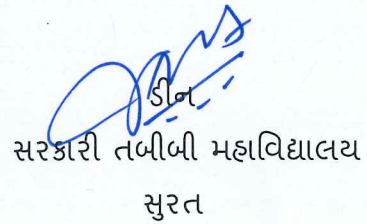 ડીન
સરકારી તબીબી મહાવિદ્યાલય
સુરત